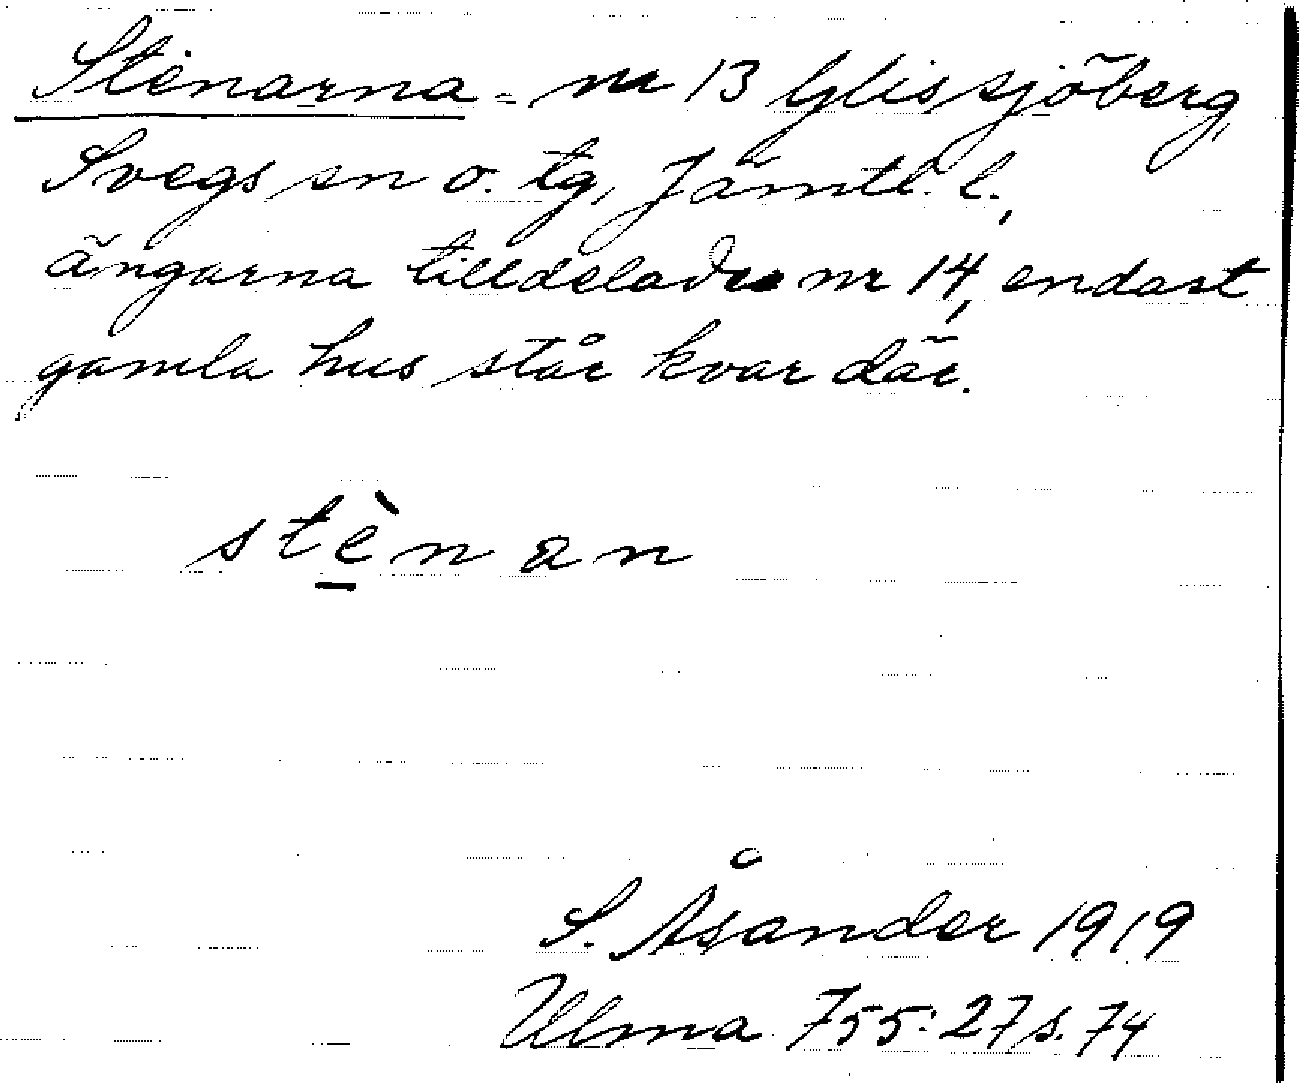 Stenarna = nr 13 Glissjöberg,
Svegs sn o. tg, Jämtl. l.,
ängarna tilldelades nr 14, endast
gamla hus står kvar där.
stènan
S. Åsander 1919
Ulma 755:27 s. 74